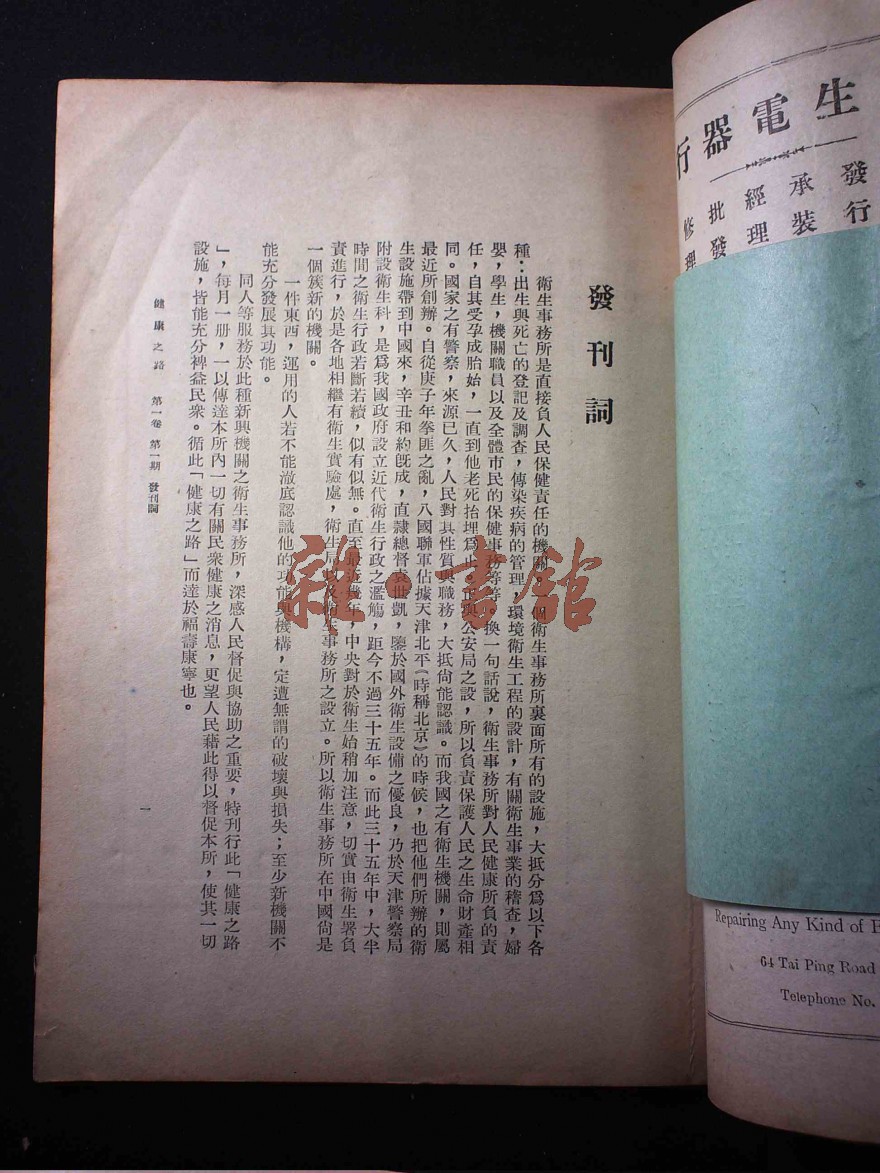 發刊詞
衛生事務所是直接負人民保健責任的機關。一個衛生事務所裏面所有的設施，大抵分爲以下各
種：出生與死亡的登記及調查，傳染疾病的管理，環境衛生工程的設計，有關衛生事業的稽查，婦
嬰，學生，機關職員以及全體市民的保健事務等等。換一句話說，衛生事務所對人民健康所負的責
任，自其受孕成胎始，一直到他老死抬埋爲止。正與公安局之設，所以負責保護人民之生命財產相
同。國家之有警察，來源已久，人民對其性質與職務，大抵尙能認識。而我國之有衛生機關，則屬
最近所創辦。自從庚子年拳匪之亂，八國聯軍佔據天津北平（時稱北京）的時候，也把他們所辦的衛
生設施帶到中國來，辛丑和約旣成，直隸總督袁世凱，鑒於國外衛生設備之優良，乃於天津警察局
附設衛生科，是爲我國政府設立近代衛生行政之濫觴，距今不過三十五年。而此三十五年中，大半
時間之衛生行政若斷若續，似有似無。直至最近幾年，中央對於衛生始稍加注意，切實由衛生署負
責進行，於是各地相繼有衛生實驗處，衛生局以及衛生事務所之設立。所以衛生事務所在中國尙是
一個簇新的機關。
一件東西，運用的人若不能澈底認識他的功能與機構，定遭無謂的破壞與損失；至少新機關不
能充分發展其功能。
同人等服務於此種新興機關之衛生事務所，深感人民督促與協助之重要，特刊行此「健康之路
」，每月一册，一以傳達本所內一切有關民衆健康之消息，更望人民藉此得以督促本所，使其一切
設施，皆能充分裨益民衆。循此「健康之路」而達於福壽康寧也。
健康之路 第一卷 第一期 發刊詞
一
生電器行
發行
承裝
經理
批發
修理
Repairing Any Kind of E
64 Tai Ping Road
Telephone No.
雜·書館